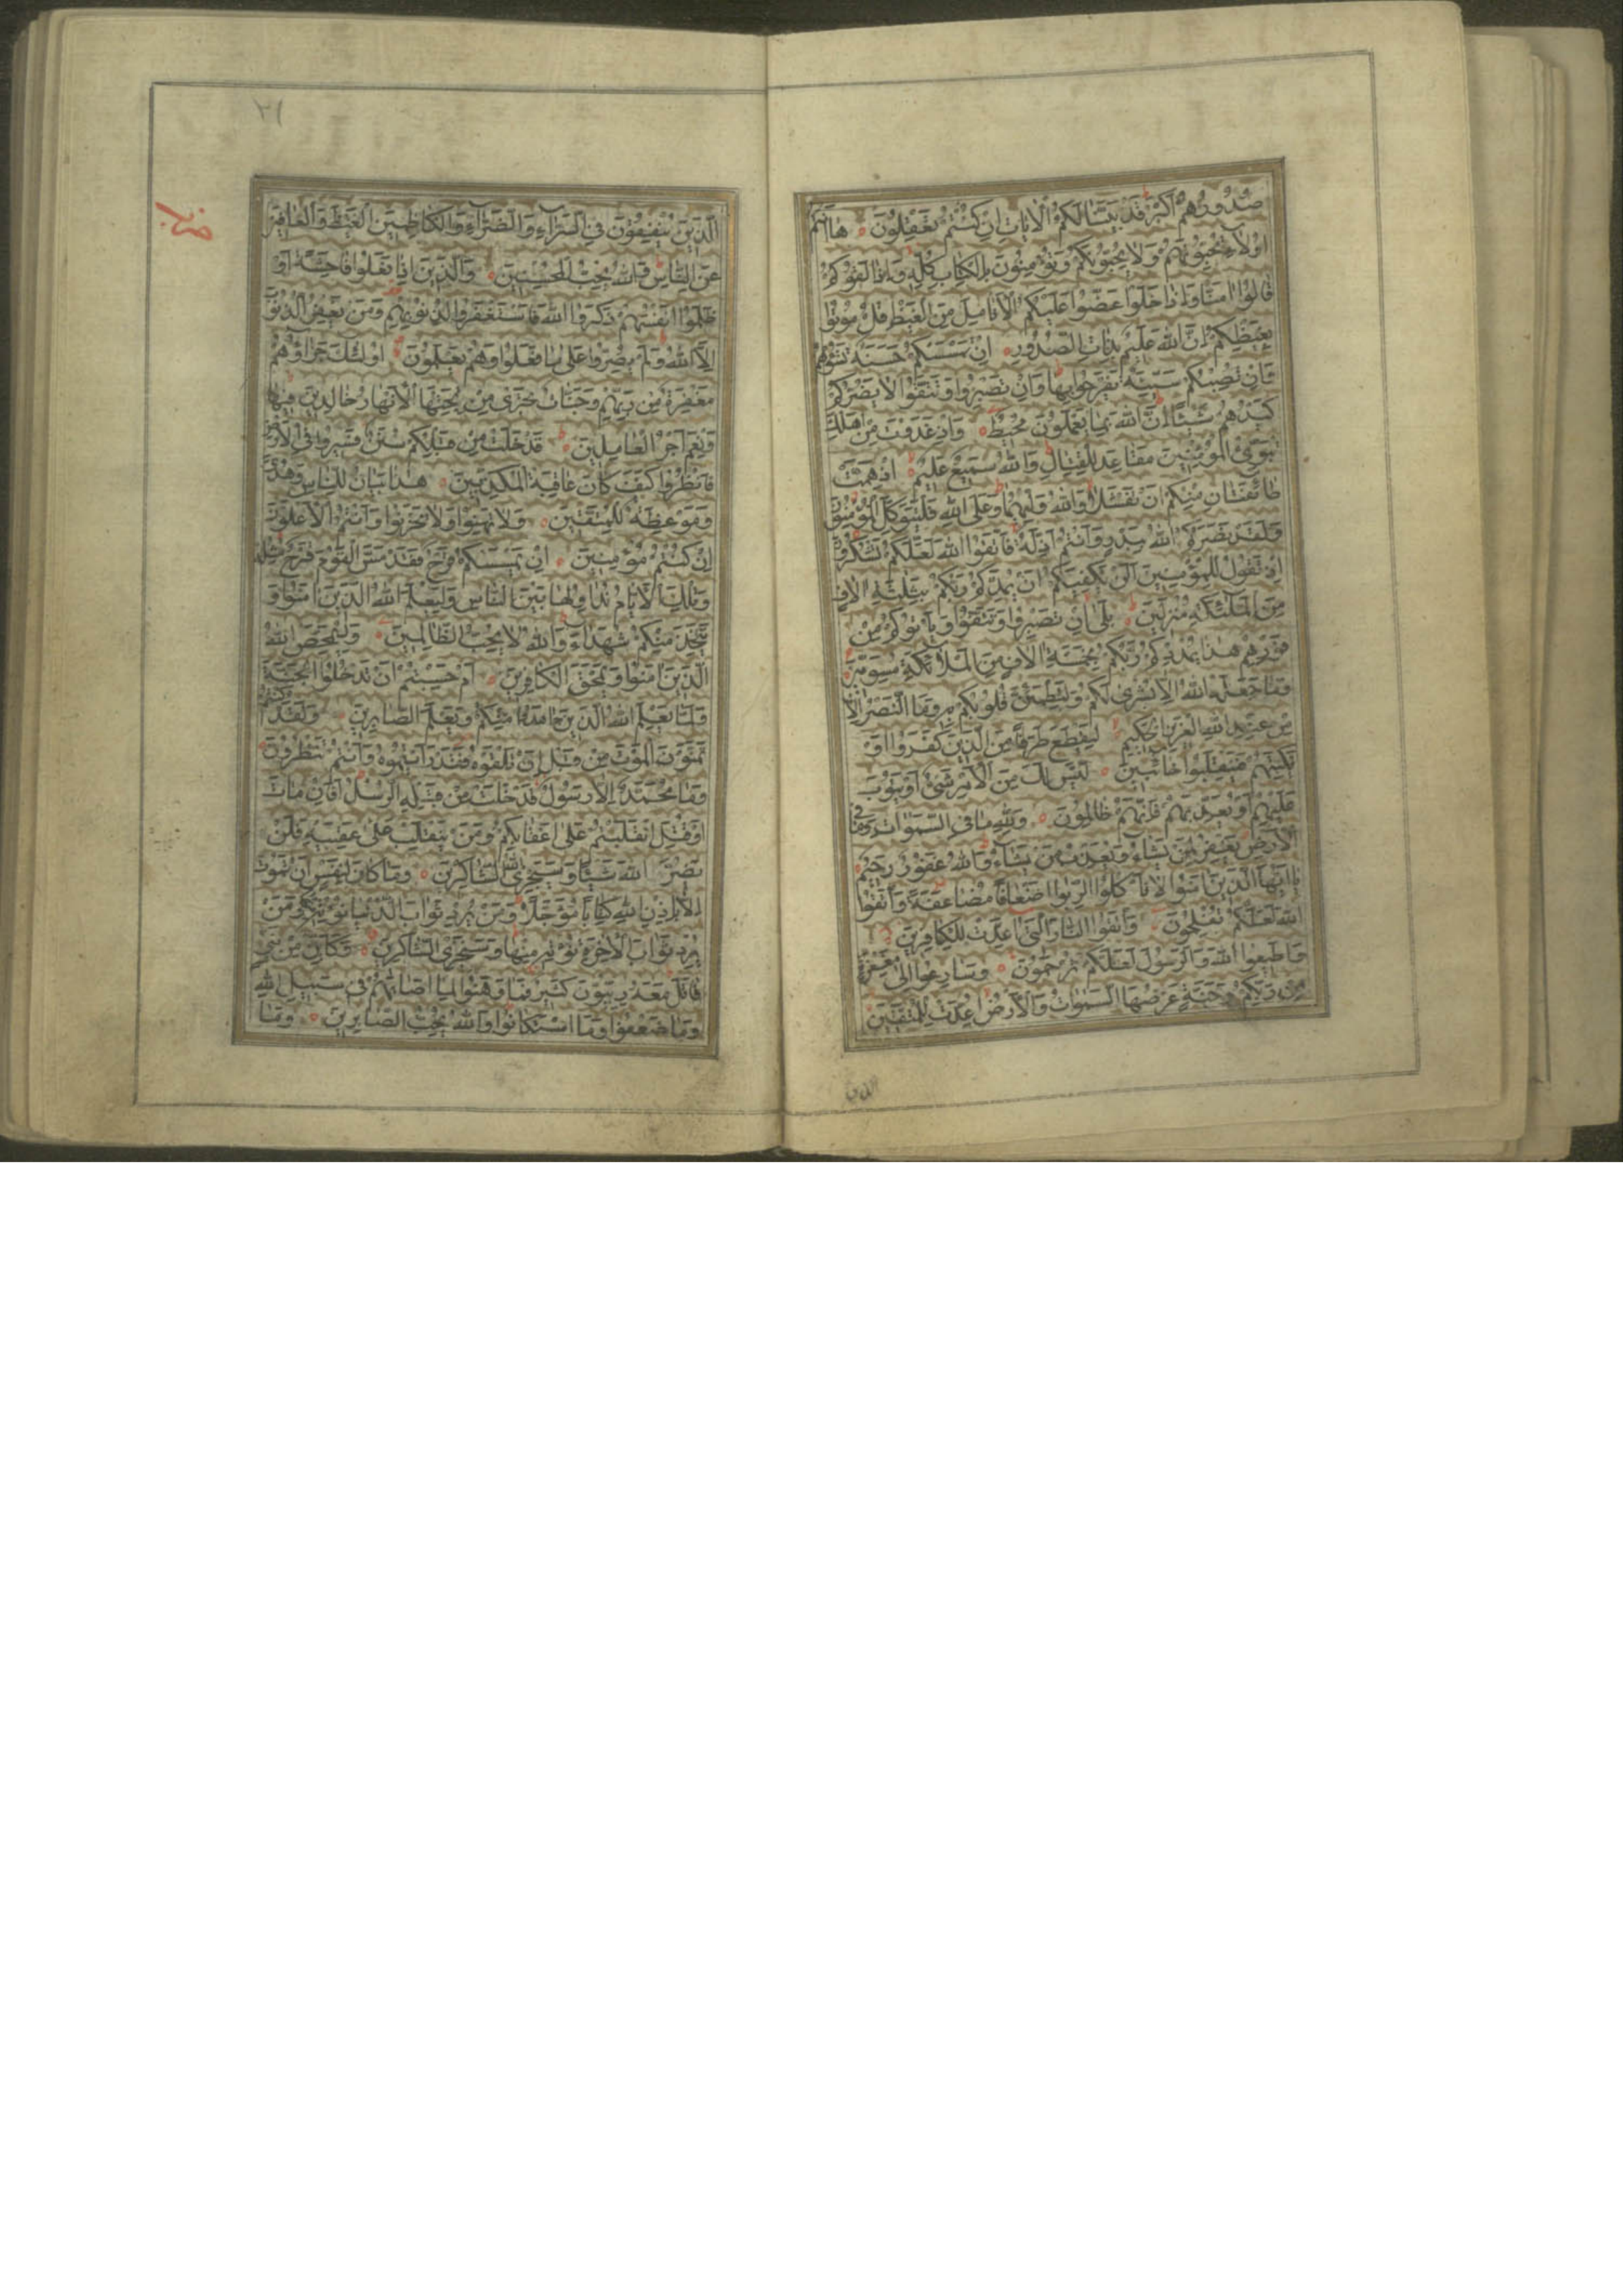 صُدُورُهُمْ اَكْبَرُ قَدْ بَيَّنَّا لَكُمُ الْاٰيَاتِ اِنْ كُنْتُمْ تَعْقِلُونَ هَا اَنْتُمْ
اُولَاءِ تُحِبُّونَهُمْ وَلَا يُحِبُّونَكُمْ وَتُؤْمِنُونَ بِالْكِتَابِ كُلِّهِ وَاِذَا لَقُوكُمْ
قَالُوا اٰمَنَّا وَاِذَا خَلَوْا عَضُّوا عَلَيْكُمُ الْاَنَامِلَ مِنَ الْغَيْظِ قُلْ مُوتُوا
بِغَيْظِكُمْ اِنَّ اللهَ عَلِيمٌ بِذَاتِ الصُّدُورِ اِنْ تَمْسَسْكُمْ حَسَنَةٌ تَسُؤْهُمْ
وَاِنْ تُصِبْكُمْ سَيِّئَةٌ يَفْرَحُوا بِهَا وَاِنْ تَصْبِرُوا وَتَتَّقُوا لَا يَضُرُّكُمْ
كَيْدُهُمْ شَيْئًا اِنَّ اللهَ بِمَا يَعْمَلُونَ مُحِيطٌ وَاِذْ غَدَوْتَ مِنْ اَهْلِكَ
تُبَوِّئُ الْمُؤْمِنِينَ مَقَاعِدَ لِلْقِتَالِ وَاللهُ سَمِيعٌ عَلِيمٌ اِذْ هَمَّتْ
طَائِفَتَانِ مِنْكُمْ اَنْ تَفْشَلَا وَاللهُ وَلِيُّهُمَا وَعَلَى اللهِ فَلْيَتَوَكَّلِ الْمُؤْمِنُونَ
وَلَقَدْ نَصَرَكُمُ اللهُ بِبَدْرٍ وَاَنْتُمْ اَذِلَّةٌ فَاتَّقُوا اللهَ لَعَلَّكُمْ تَشْكُرُونَ
اِذْ تَقُولُ لِلْمُؤْمِنِينَ اَلَنْ يَكْفِيَكُمْ اَنْ يُمِدَّكُمْ رَبُّكُمْ بِثَلٰثَةِ اٰلَافٍ
مِنَ الْمَلٰئِكَةِ مُنْزَلِينَ بَلٰى اِنْ تَصْبِرُوا وَتَتَّقُوا وَيَأْتُوكُمْ مِنْ
فَوْرِهِمْ هٰذَا يُمْدِدْكُمْ رَبُّكُمْ بِخَمْسَةِ اٰلَافٍ مِنَ الْمَلَائِكَةِ مُسَوِّمِينَ
وَمَا جَعَلَهُ اللهُ اِلَّا بُشْرٰى لَكُمْ وَلِتَطْمَئِنَّ قُلُوبُكُمْ بِهِ وَمَا النَّصْرُ اِلَّا
مِنْ عِنْدِ اللهِ الْعَزِيزِ الْحَكِيمِ لِيَقْطَعَ طَرَفًا مِنَ الَّذِينَ كَفَرُوا اَوْ
يَكْبِتَهُمْ فَيَنْقَلِبُوا خَائِبِينَ لَيْسَ لَكَ مِنَ الْاَمْرِ شَيْءٌ اَوْ يَتُوبَ
عَلَيْهِمْ اَوْ يُعَذِّبَهُمْ فَاِنَّهُمْ ظَالِمُونَ وَلِلّٰهِ مَا فِي السَّمٰوَاتِ وَمَا فِي
الْاَرْضِ يَغْفِرُ لِمَنْ يَشَاءُ وَيُعَذِّبُ مَنْ يَشَاءُ وَاللهُ غَفُورٌ رَحِيمٌ
يَا اَيُّهَا الَّذِينَ اٰمَنُوا لَا تَأْكُلُوا الرِّبٰوا اَضْعَافًا مُضَاعَفَةً وَاتَّقُوا
اللهَ لَعَلَّكُمْ تُفْلِحُونَ وَاتَّقُوا النَّارَ الَّتِي اُعِدَّتْ لِلْكَافِرِينَ
وَاَطِيعُوا اللهَ وَالرَّسُولَ لَعَلَّكُمْ تُرْحَمُونَ وَسَارِعُوا اِلٰى مَغْفِرَةٍ
مِنْ رَبِّكُمْ وَجَنَّةٍ عَرْضُهَا السَّمٰوَاتُ وَالْاَرْضُ اُعِدَّتْ لِلْمُتَّقِينَ
الذين
٢١
اَلَّذِينَ يُنْفِقُونَ فِي السَّرَّاءِ وَالضَّرَّاءِ وَالْكَاظِمِينَ الْغَيْظَ وَالْعَافِينَ
عَنِ النَّاسِ وَاللهُ يُحِبُّ الْمُحْسِنِينَ وَالَّذِينَ اِذَا فَعَلُوا فَاحِشَةً اَوْ
ظَلَمُوا اَنْفُسَهُمْ ذَكَرُوا اللهَ فَاسْتَغْفَرُوا لِذُنُوبِهِمْ وَمَنْ يَغْفِرُ الذُّنُوبَ
اِلَّا اللهُ وَلَمْ يُصِرُّوا عَلٰى مَا فَعَلُوا وَهُمْ يَعْلَمُونَ اُولٰئِكَ جَزَاؤُهُمْ
مَغْفِرَةٌ مِنْ رَبِّهِمْ وَجَنَّاتٌ تَجْرِي مِنْ تَحْتِهَا الْاَنْهَارُ خَالِدِينَ فِيهَا
وَنِعْمَ اَجْرُ الْعَامِلِينَ قَدْ خَلَتْ مِنْ قَبْلِكُمْ سُنَنٌ فَسِيرُوا فِي الْاَرْضِ
فَانْظُرُوا كَيْفَ كَانَ عَاقِبَةُ الْمُكَذِّبِينَ هٰذَا بَيَانٌ لِلنَّاسِ وَهُدًى
وَمَوْعِظَةٌ لِلْمُتَّقِينَ وَلَا تَهِنُوا وَلَا تَحْزَنُوا وَاَنْتُمُ الْاَعْلَوْنَ
اِنْ كُنْتُمْ مُؤْمِنِينَ اِنْ يَمْسَسْكُمْ قَرْحٌ فَقَدْ مَسَّ الْقَوْمَ قَرْحٌ مِثْلُهُ
وَتِلْكَ الْاَيَّامُ نُدَاوِلُهَا بَيْنَ النَّاسِ وَلِيَعْلَمَ اللهُ الَّذِينَ اٰمَنُوا وَ
يَتَّخِذَ مِنْكُمْ شُهَدَاءَ وَاللهُ لَا يُحِبُّ الظَّالِمِينَ وَلِيُمَحِّصَ اللهُ
الَّذِينَ اٰمَنُوا وَيَمْحَقَ الْكَافِرِينَ اَمْ حَسِبْتُمْ اَنْ تَدْخُلُوا الْجَنَّةَ
وَلَمَّا يَعْلَمِ اللهُ الَّذِينَ جَاهَدُوا مِنْكُمْ وَيَعْلَمَ الصَّابِرِينَ وَلَقَدْ كُنْتُمْ
تَمَنَّوْنَ الْمَوْتَ مِنْ قَبْلِ اَنْ تَلْقَوْهُ فَقَدْ رَاَيْتُمُوهُ وَاَنْتُمْ تَنْظُرُونَ
وَمَا مُحَمَّدٌ اِلَّا رَسُولٌ قَدْ خَلَتْ مِنْ قَبْلِهِ الرُّسُلُ اَفَاِنْ مَاتَ
اَوْ قُتِلَ انْقَلَبْتُمْ عَلٰى اَعْقَابِكُمْ وَمَنْ يَنْقَلِبْ عَلٰى عَقِبَيْهِ فَلَنْ
يَضُرَّ اللهَ شَيْئًا وَسَيَجْزِي اللهُ الشَّاكِرِينَ وَمَا كَانَ لِنَفْسٍ اَنْ تَمُوتَ
اِلَّا بِاِذْنِ اللهِ كِتَابًا مُؤَجَّلًا وَمَنْ يُرِدْ ثَوَابَ الدُّنْيَا نُؤْتِهِ مِنْهَا وَمَنْ
يُرِدْ ثَوَابَ الْاٰخِرَةِ نُؤْتِهِ مِنْهَا وَسَنَجْزِي الشَّاكِرِينَ وَكَاَيِّنْ مِنْ نَبِيٍّ
قَاتَلَ مَعَهُ رِبِّيُّونَ كَثِيرٌ فَمَا وَهَنُوا لِمَا اَصَابَهُمْ فِي سَبِيلِ اللهِ
وَمَا ضَعُفُوا وَمَا اسْتَكَانُوا وَاللهُ يُحِبُّ الصَّابِرِينَ وَمَا